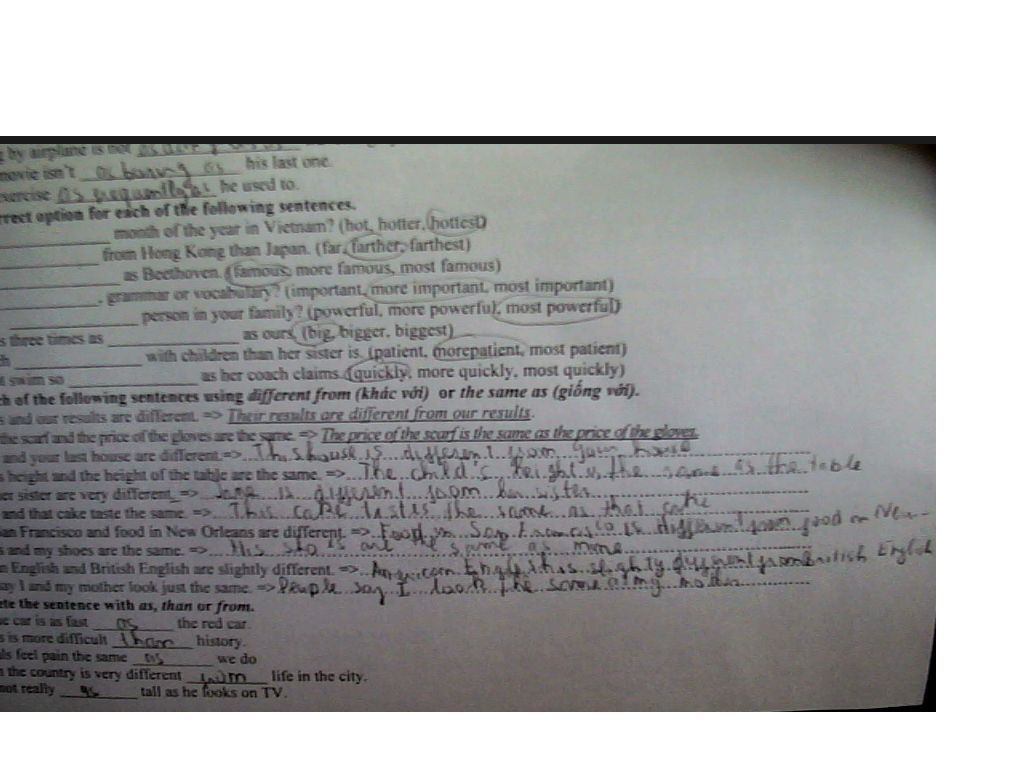 by airplane is not
movie isn't as boring as his last one.
exercise as frequently as he used to.
rrect option for each of the following sentences.
____________ month of the year in Vietnam? (hot, hotter, hottest)
____________ from Hong Kong than Japan. (far, farther, farthest)
____________ as Beethoven. (famous, more famous, most famous)
____________, grammar or vocabulary? (important, more important, most important)
____________ person in your family? (powerful, more powerful, most powerful)
s three times as ____________ as ours. (big, bigger, biggest)
h ____________ with children than her sister is. (patient, morepatient, most patient)
swim so ____________ as her coach claims. (quickly, more quickly, most quickly)
ch of the following sentences using different from (khác với) or the same as (giống với).
s and our results are different. => Their results are different from our results.
the scarf and the price of the gloves are the same. => The price of the scarf is the same as the price of the gloves.
and your last house are different.=> This house is different from your house
s height and the height of the table are the same. => The child's height is the same as the table
er sister are very different. => Jane is different from her sister
and that cake taste the same. => This cake tastes the same as that cake
an Francisco and food in New Orleans are different. => Food in San Francisco is different from food in New
s and my shoes are the same. => His are the same as mine
n English and British English are slightly different. => American English is slightly different from British English
ay I and my mother look just the same. => People say I look the same my mother
ete the sentence with as, than or from.
e car is as fast as the red car.
s is more difficult than history.
ls feel pain the same as we do
n the country is very different from life in the city.
not really as tall as he looks on TV.